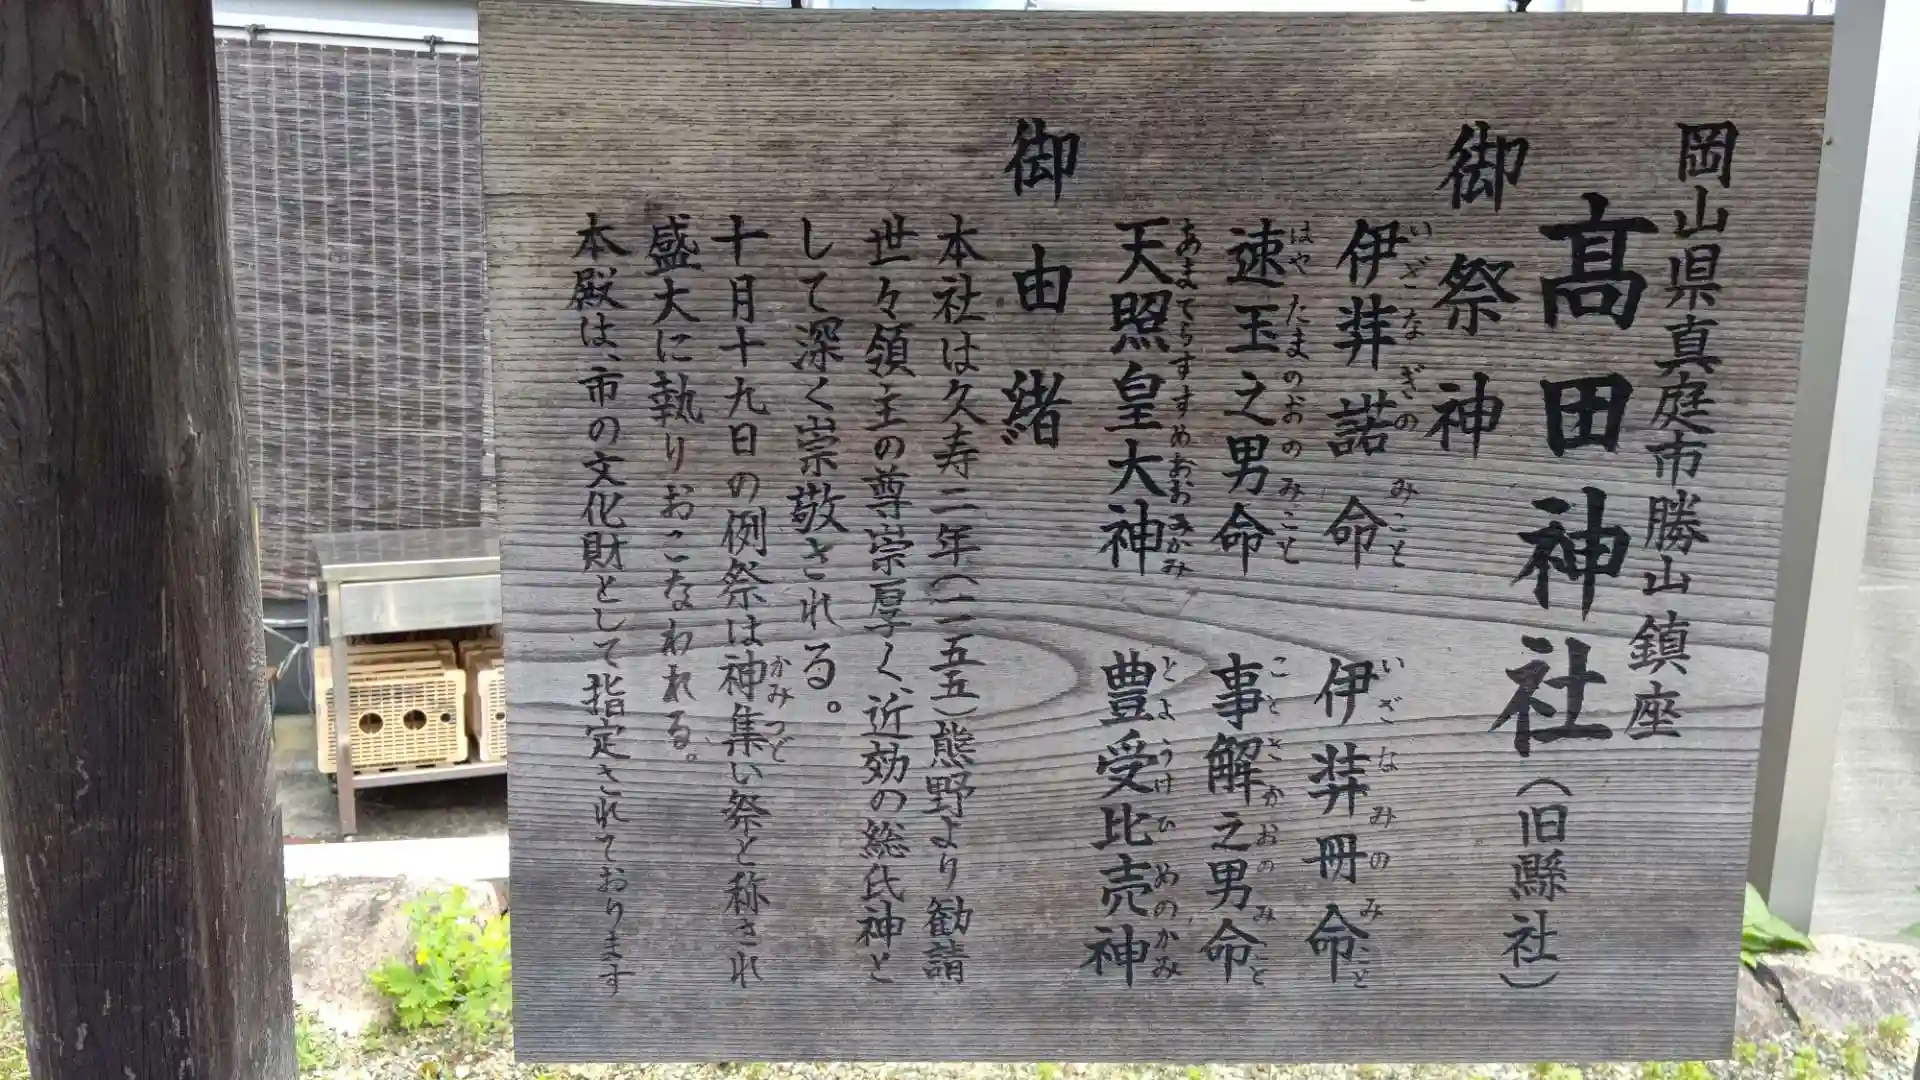 岡山県真庭市勝山鎮座
髙田神社(旧縣社)
御祭神
伊弉諾命 伊弉冊命
いざなぎのみこと いざなみのみこと
速玉之男命 事解之男命
はやたまのおのみこと ことさかおのみこと
天照皇大神 豊受比売神
あまてらすすめおおみかみ とようけひめのかみ
御由緒
本社は久寿二年(一一五五)熊野より勧請
世々領主の尊崇厚く近効の総氏神と
して深く崇敬される。
十月十九日の例祭は神集い祭と称され
かみつど
盛大に執りおこなわれる。
本殿は、市の文化財として指定されております